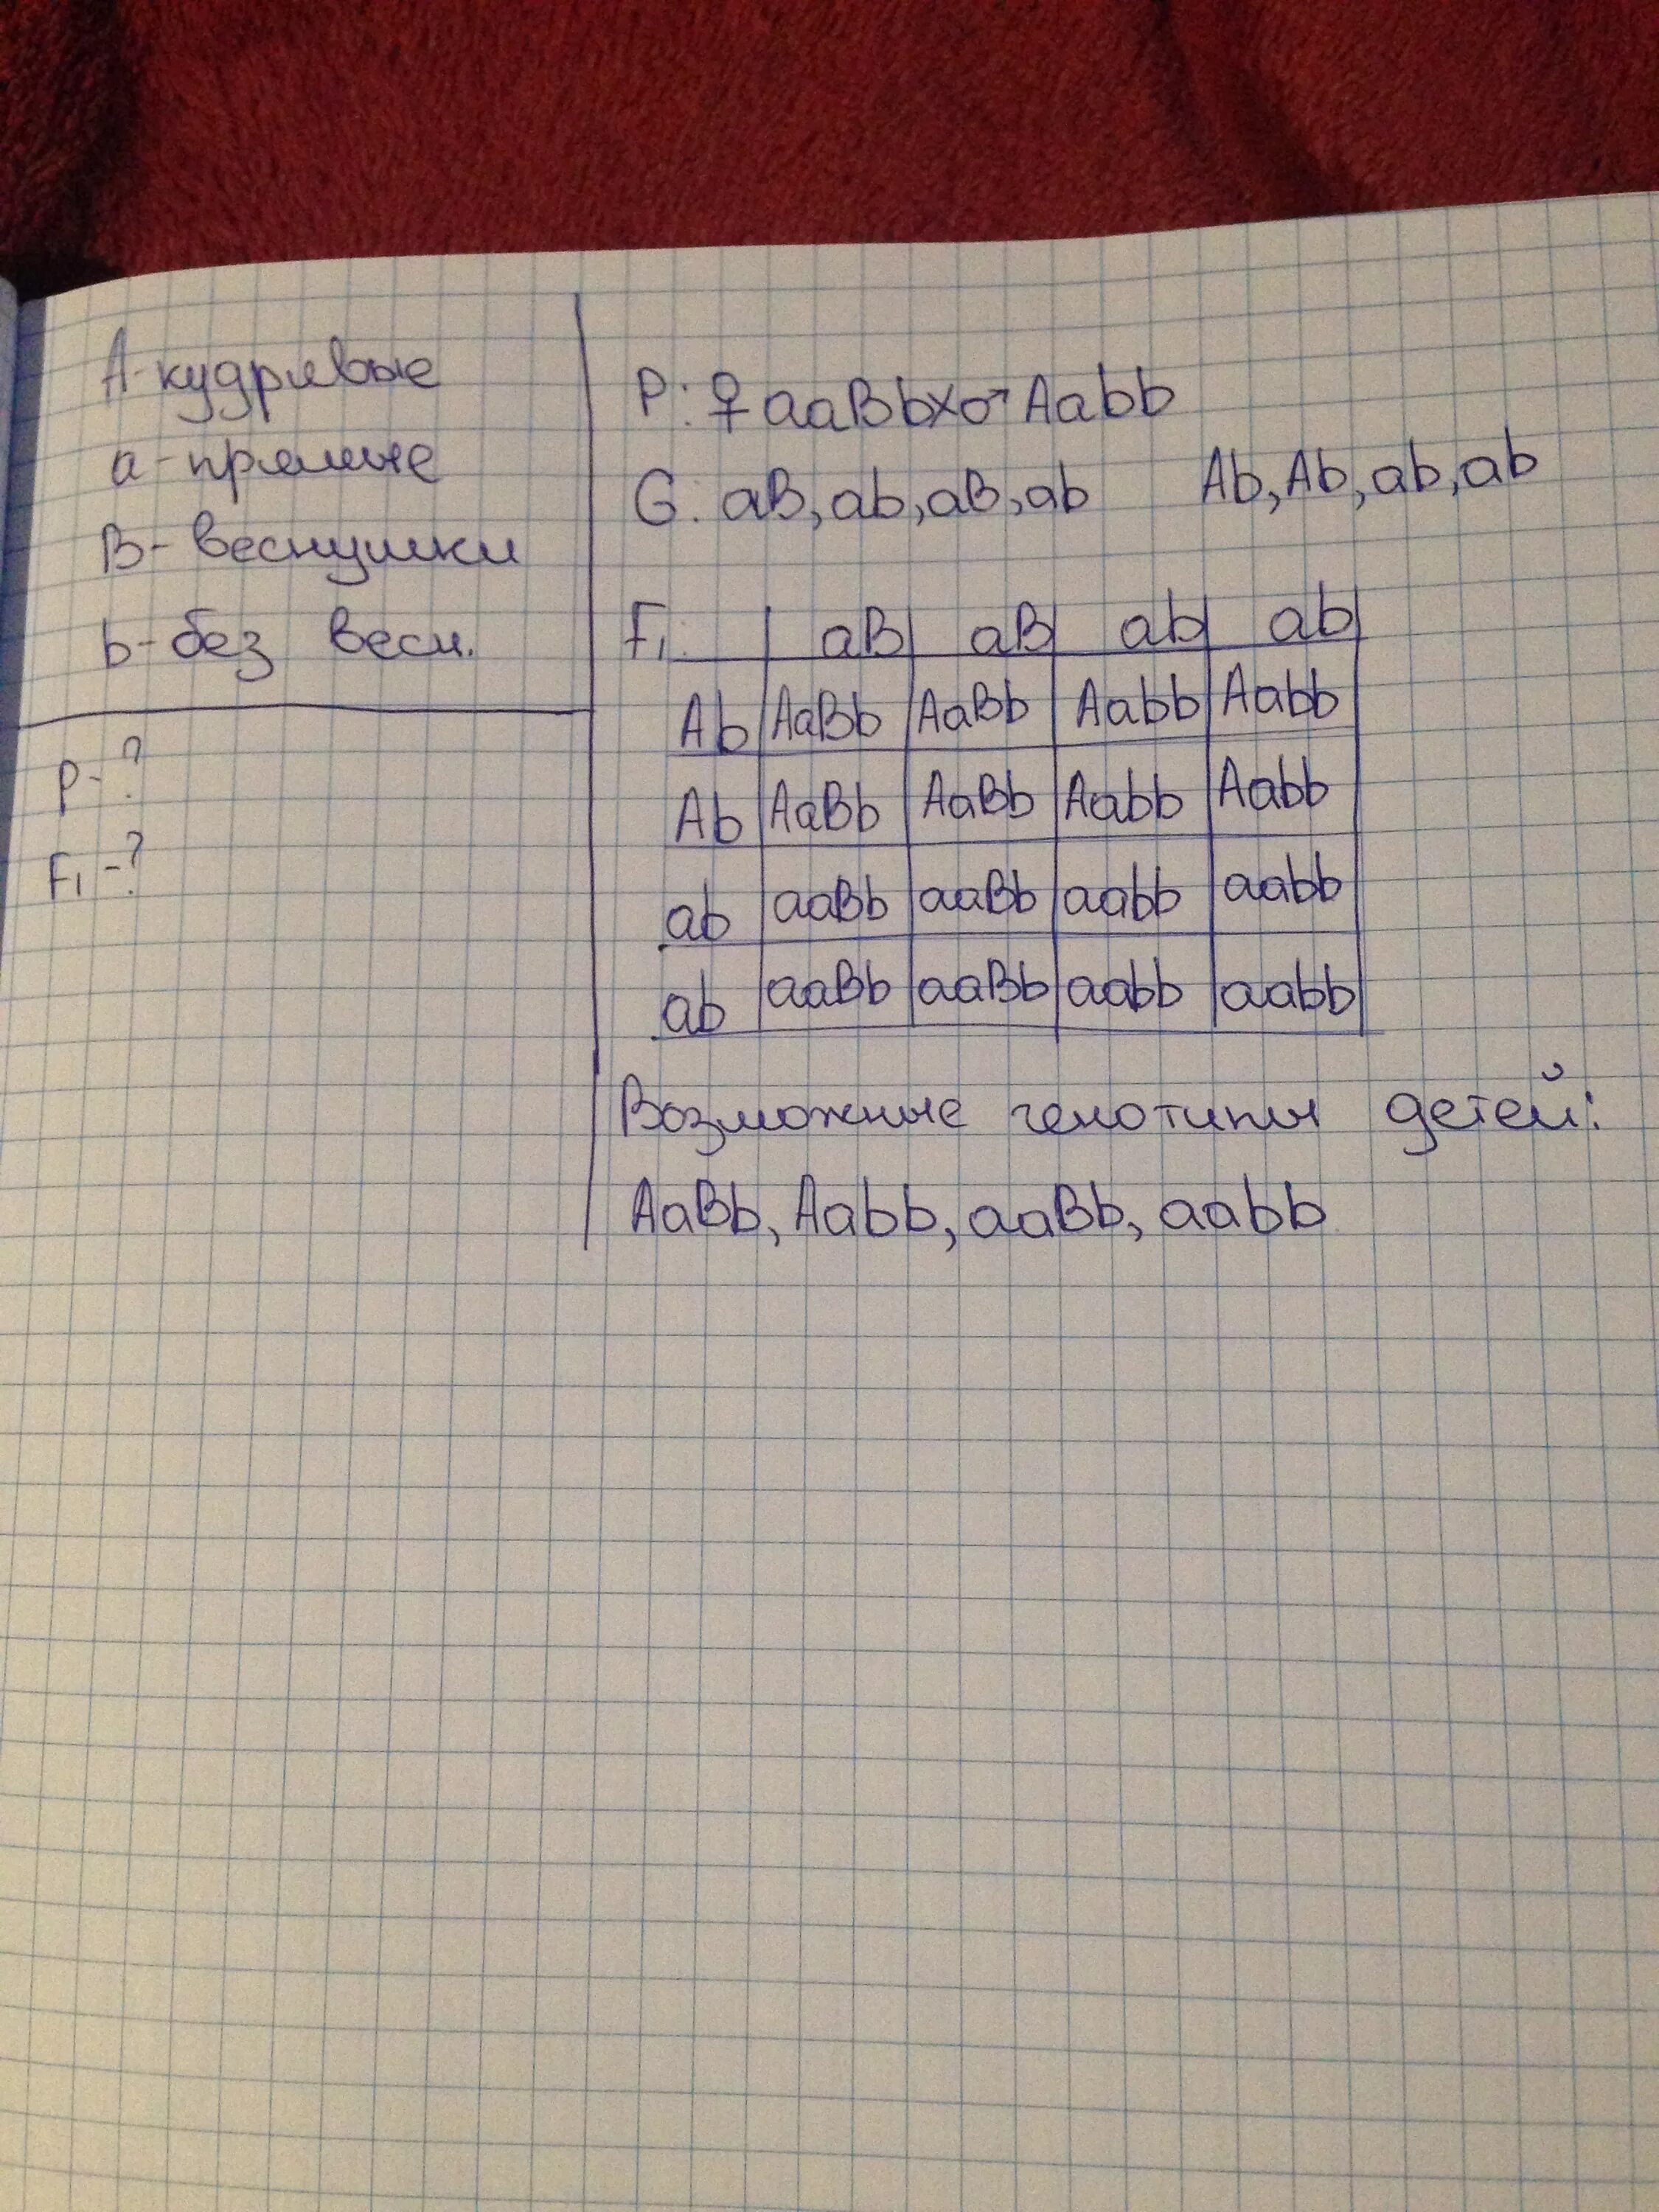 A-кудрявые
a-прямые
B-веснушки
b-без весн.
P-?
F₁-?
P: ♀ aaBb×♂ Aabb
G: aB, ab, aB, ab Ab, Ab, ab, ab
F₁: aB aB ab ab
Ab AaBb AaBb Aabb Aabb
Ab AaBb AaBb Aabb Aabb
ab aaBb aaBb aabb aabb
ab aaBb aaBb aabb aabb
Возможные генотипы детей:
AaBb, Aabb, aaBb, aabb